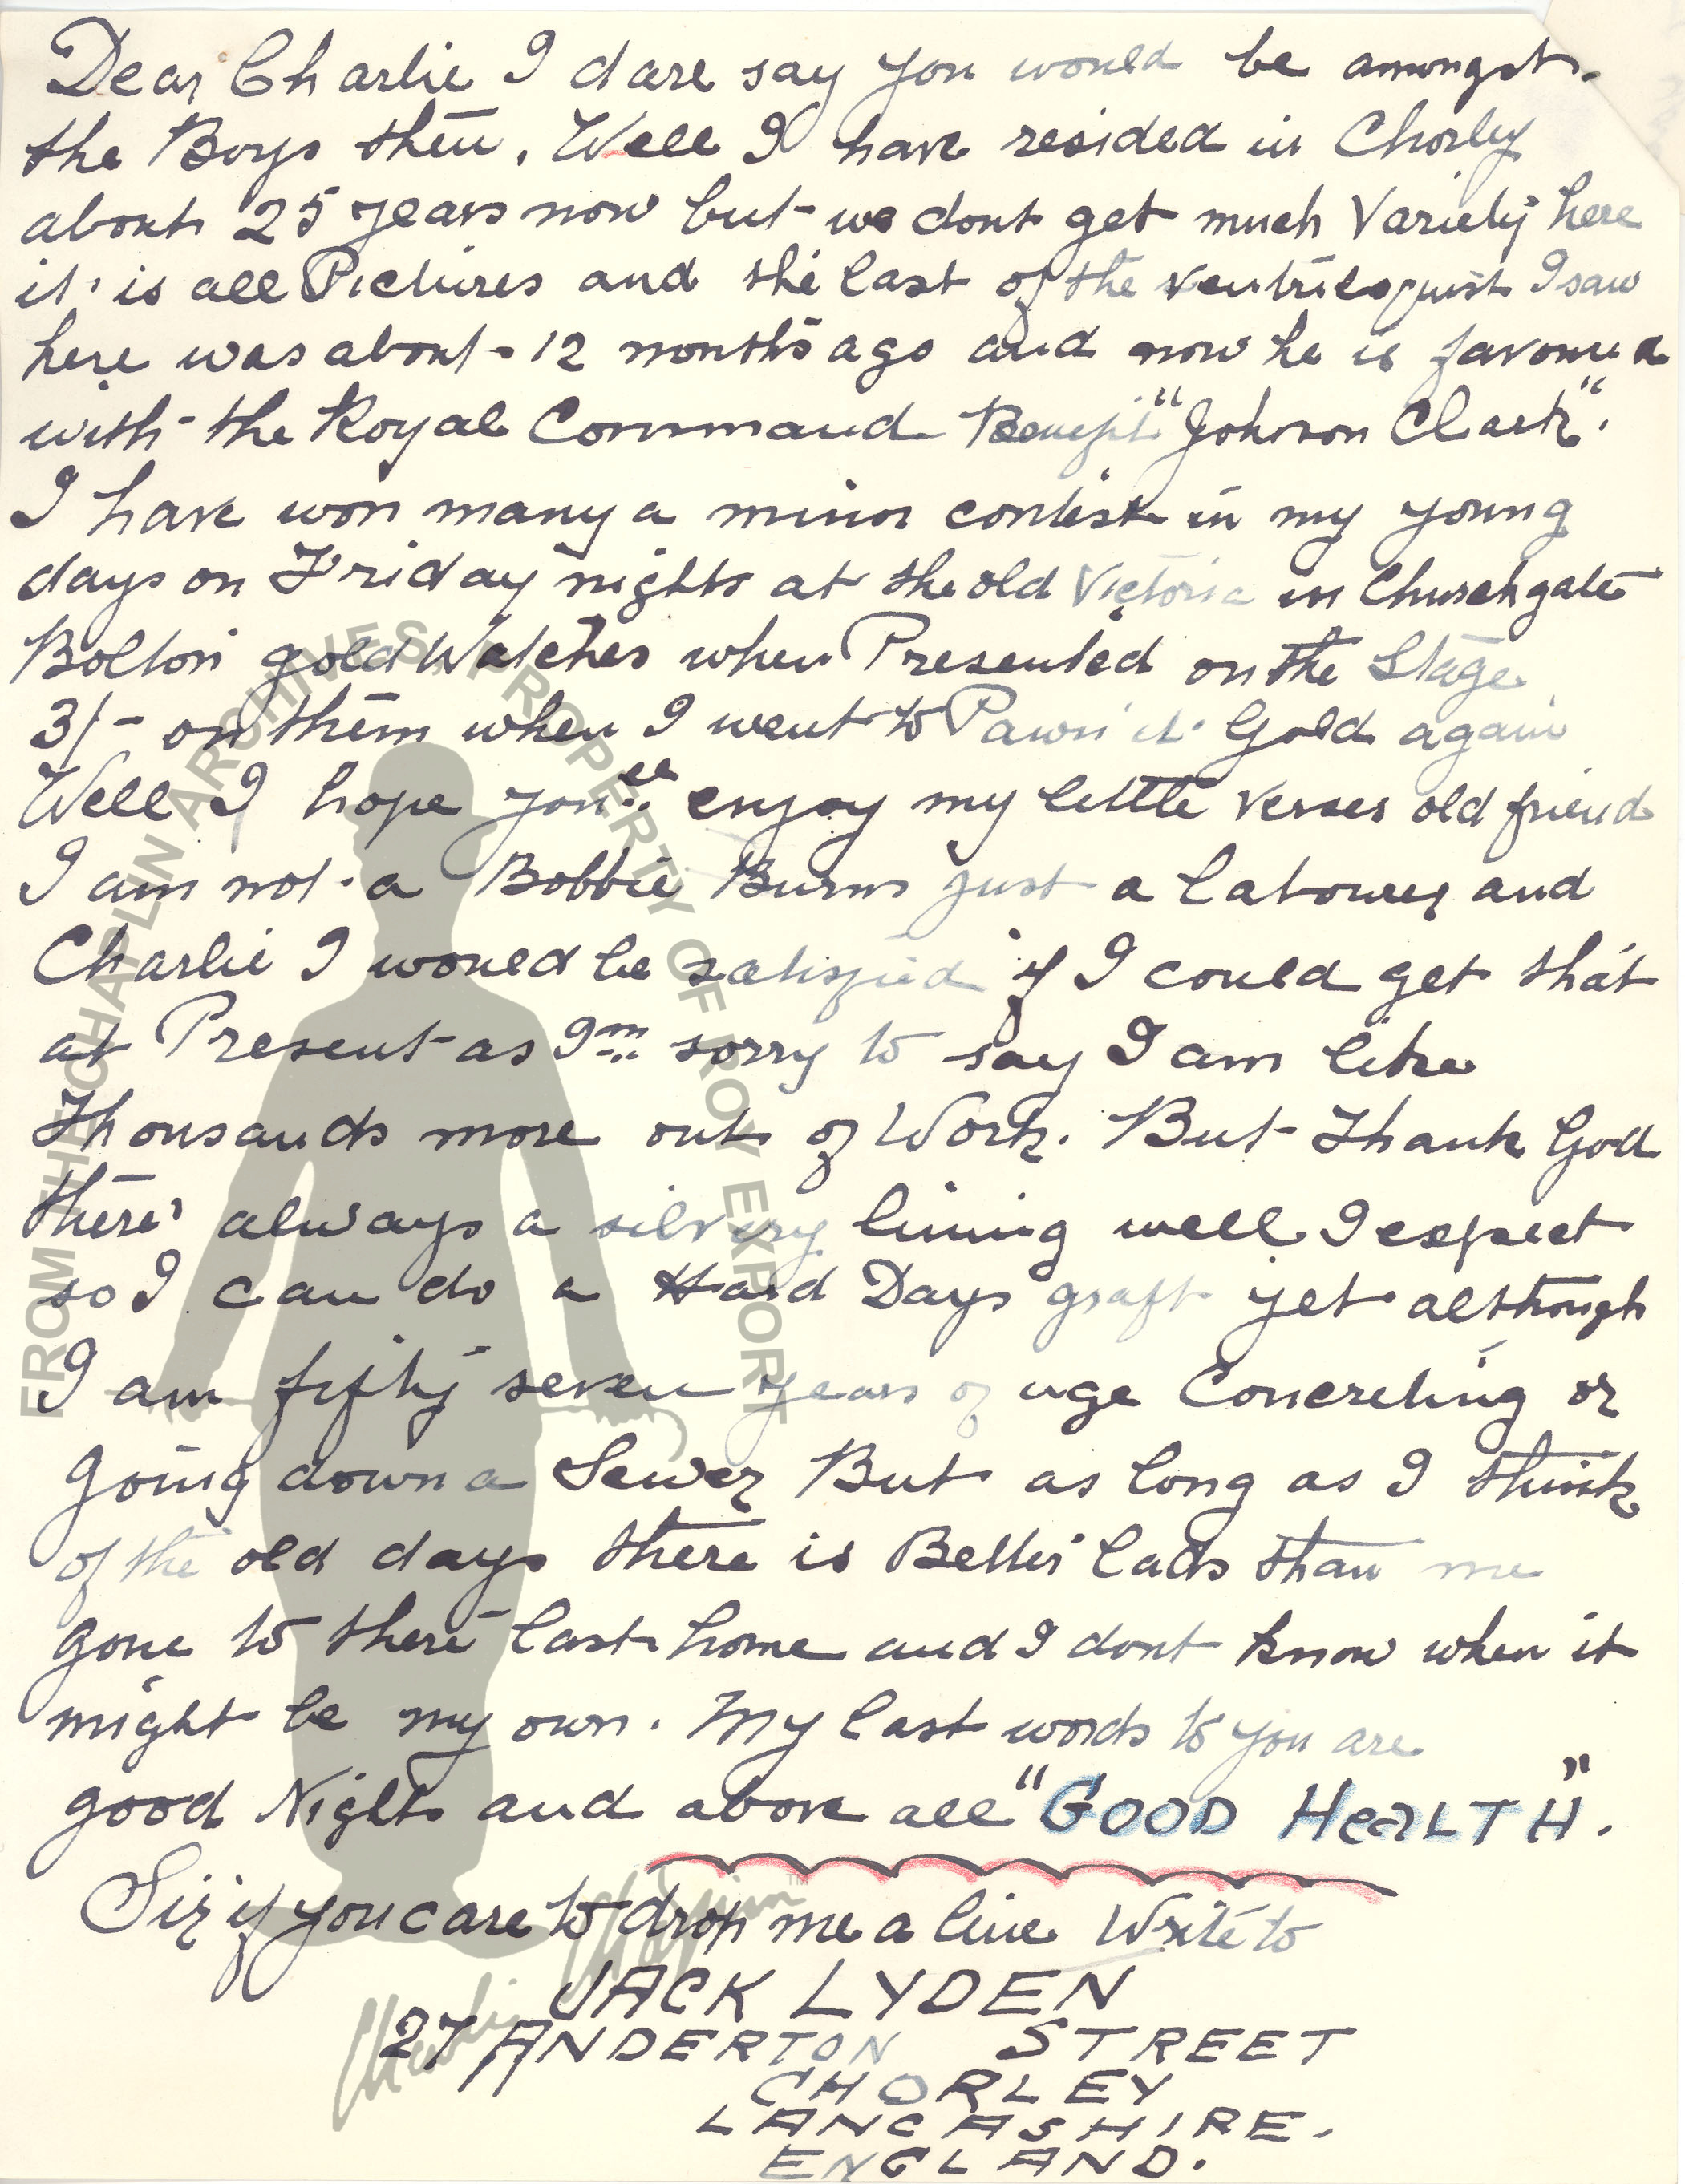 Dear Charlie I dare say you would be amongst
the Boys then. Well I have resided in Chorley
about 25 years now but we dont get much Variety here
it is all Pictures and the last of the ventriloquist I saw
here was about 12 months ago and now he is favoured
with the Royal Command Benefit "Johnson Clark".
I have won many a minor contest in my young
days on Friday nights at the old Victoria in Churchgate
Bolton gold Watches when Presented on the Stage
3/- on them when I went to Pawn it Gold again
Well I hope you'll enjoy my little verses old friend
I am not a Bobbie Burns just a labourer and
Charlie I would be satisfied if I could get that
at Present as I'm sorry to say I am like
Thousands more out of Work. But Thank God
there's always a silvery lining well I expect
so I can do a Hard Days graft yet although
I am fifty seven years of age Concreting or
going down a Sewer But as long as I think
of the old days there is Better lads than me
gone to there last home and I dont know when it
might be my own. My last words to you are
good Night and above all "GOOD HeaLTH".
Sir if you care to drop me a line Write to
JACK LYDEN
27 ANDERTON STREET
CHORLEY
LANCASHIRE.
ENGLAND.
FROM THE CHAPLIN ARCHIVES. PROPERTY OF ROY EXPORT
Charlie Chaplin
TM